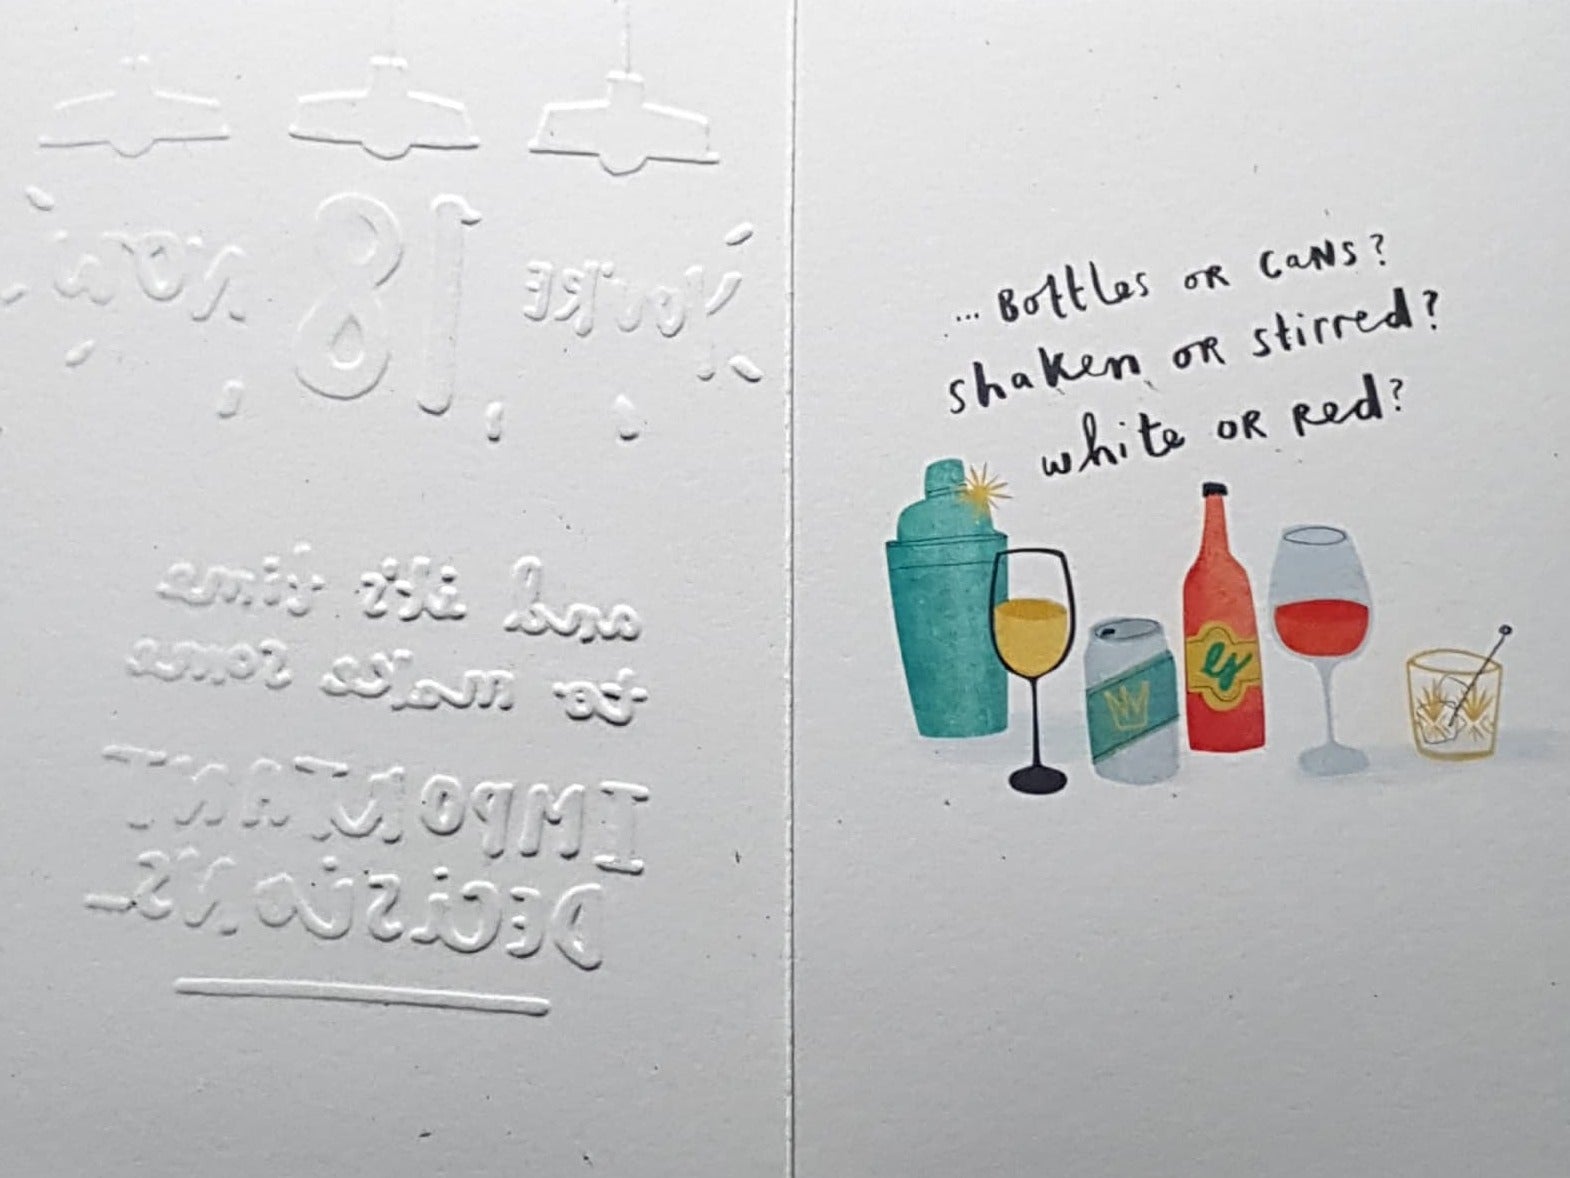 You're 18 now
and it's time
to make some
IMPORTANT
DECISIONS...
... Bottles OR CANS?
shaken OR stirred?
white OR Red?